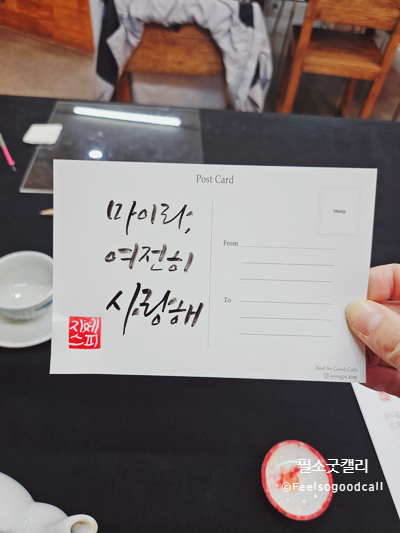 Post Card
마이라,
여전히
사랑해
stamp
From
To
지에
스피
Feel So Good Calli
필소굿캘리
©Feelsogoodcall